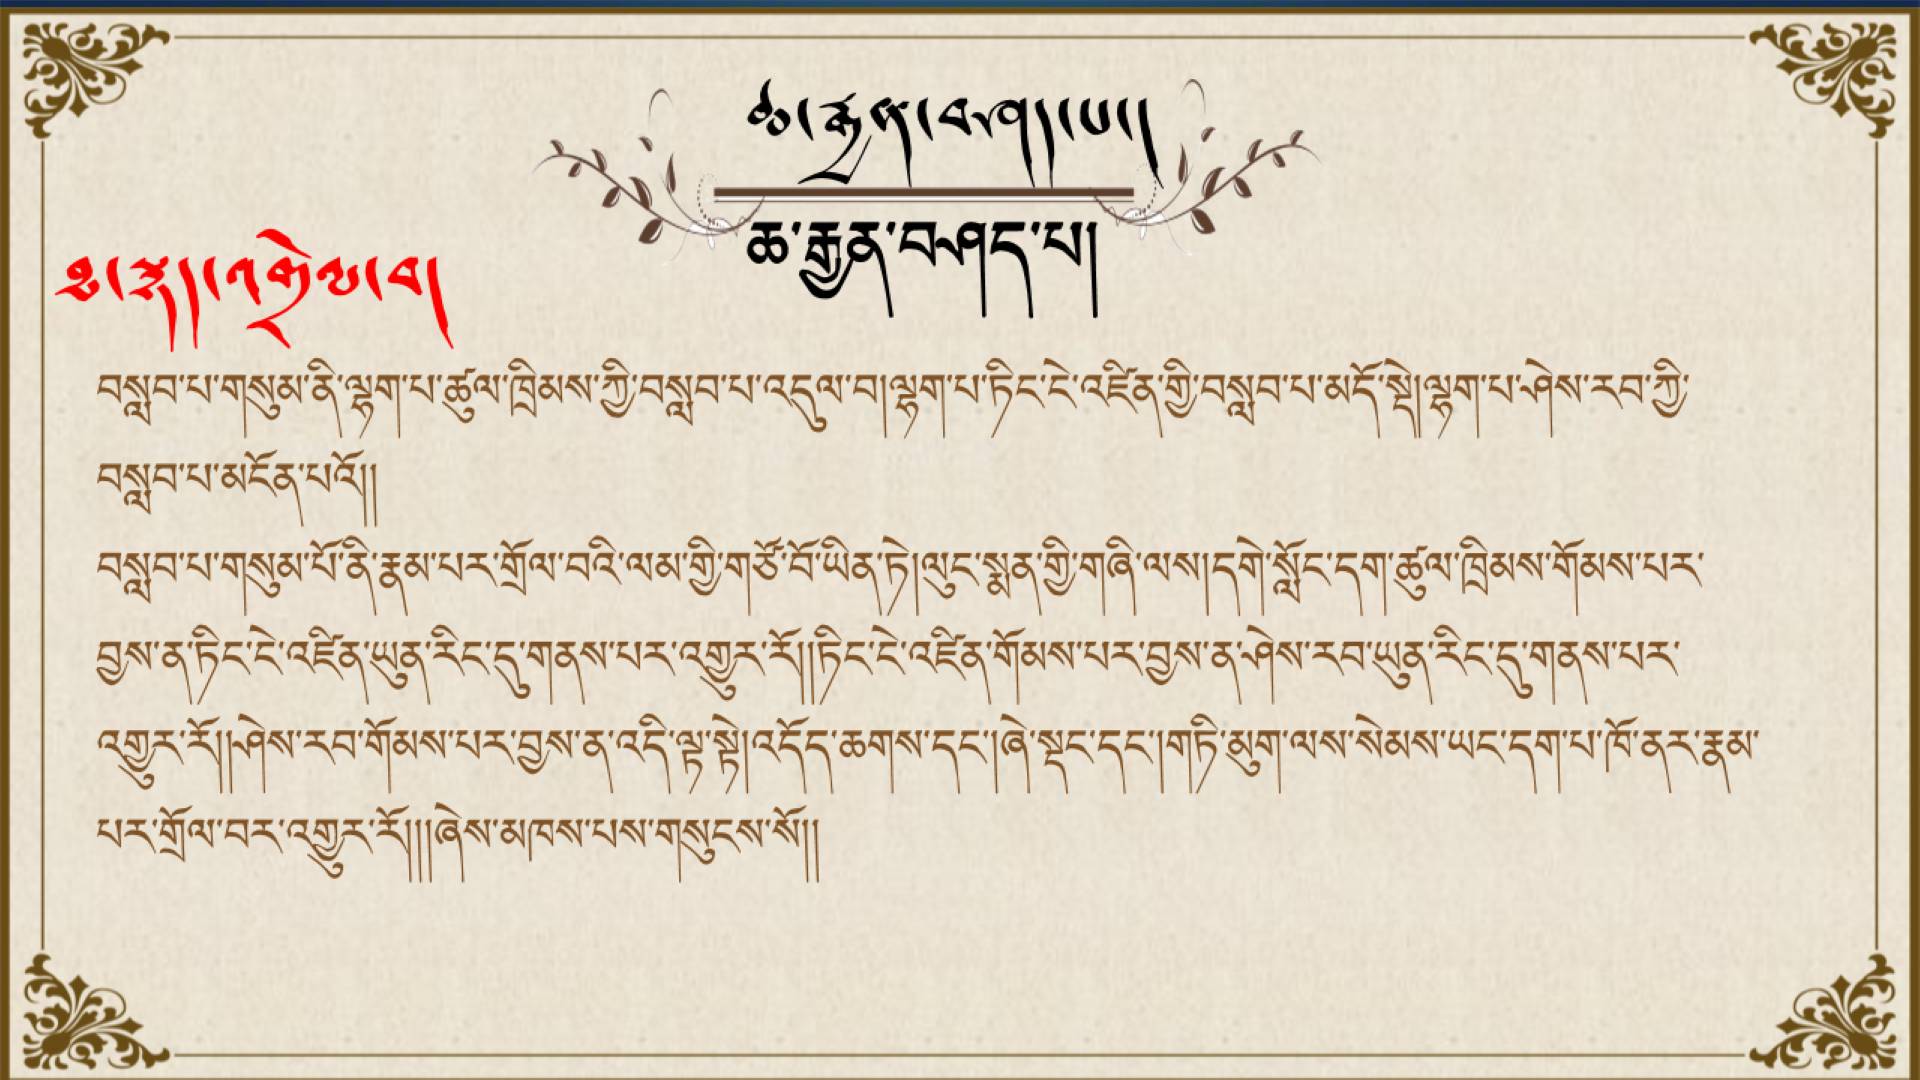 ཆ་རྐྱེན་བཤད་པ།
ཆ་རྒྱན་བཤད་པ།
ཐ་རྩད་འགྲེལ་བ།
བསླབ་པ་གསུམ་ནི་ལྷག་པ་ཚུལ་ཁྲིམས་ཀྱི་བསླབ་པ་འདུལ་བ།ལྷག་པ་ཏིང་ངེ་འཛིན་གྱི་བསླབ་པ་མདོ་སྡེ།ལྷག་པ་ཤེས་རབ་ཀྱི་
བསླབ་པ་མངོན་པའོ།།
བསླབ་པ་གསུམ་པོ་ནི་རྣམ་པར་གྲོལ་བའི་ལམ་གྱི་གཙོ་བོ་ཡིན་ཏེ།ལུང་སྨན་གྱི་གཞི་ལས།དགེ་སློང་དག་ཚུལ་ཁྲིམས་གོམས་པར་
བྱས་ན་ཏིང་ངེ་འཛིན་ཡུན་རིང་དུ་གནས་པར་འགྱུར་རོ།།ཏིང་ངེ་འཛིན་གོམས་པར་བྱས་ན་ཤེས་རབ་ཡུན་རིང་དུ་གནས་པར་
འགྱུར་རོ།།ཤེས་རབ་གོམས་པར་བྱས་ན་འདི་ལྟ་སྟེ།འདོད་ཆགས་དང་།ཞེ་སྡང་དང་།གཏི་མུག་ལས་སེམས་ཡང་དག་པ་ཁོ་ནར་རྣམ་
པར་གྲོལ་བར་འགྱུར་རོ།།།ཞེས་མཁས་པས་གསུངས་སོ།།